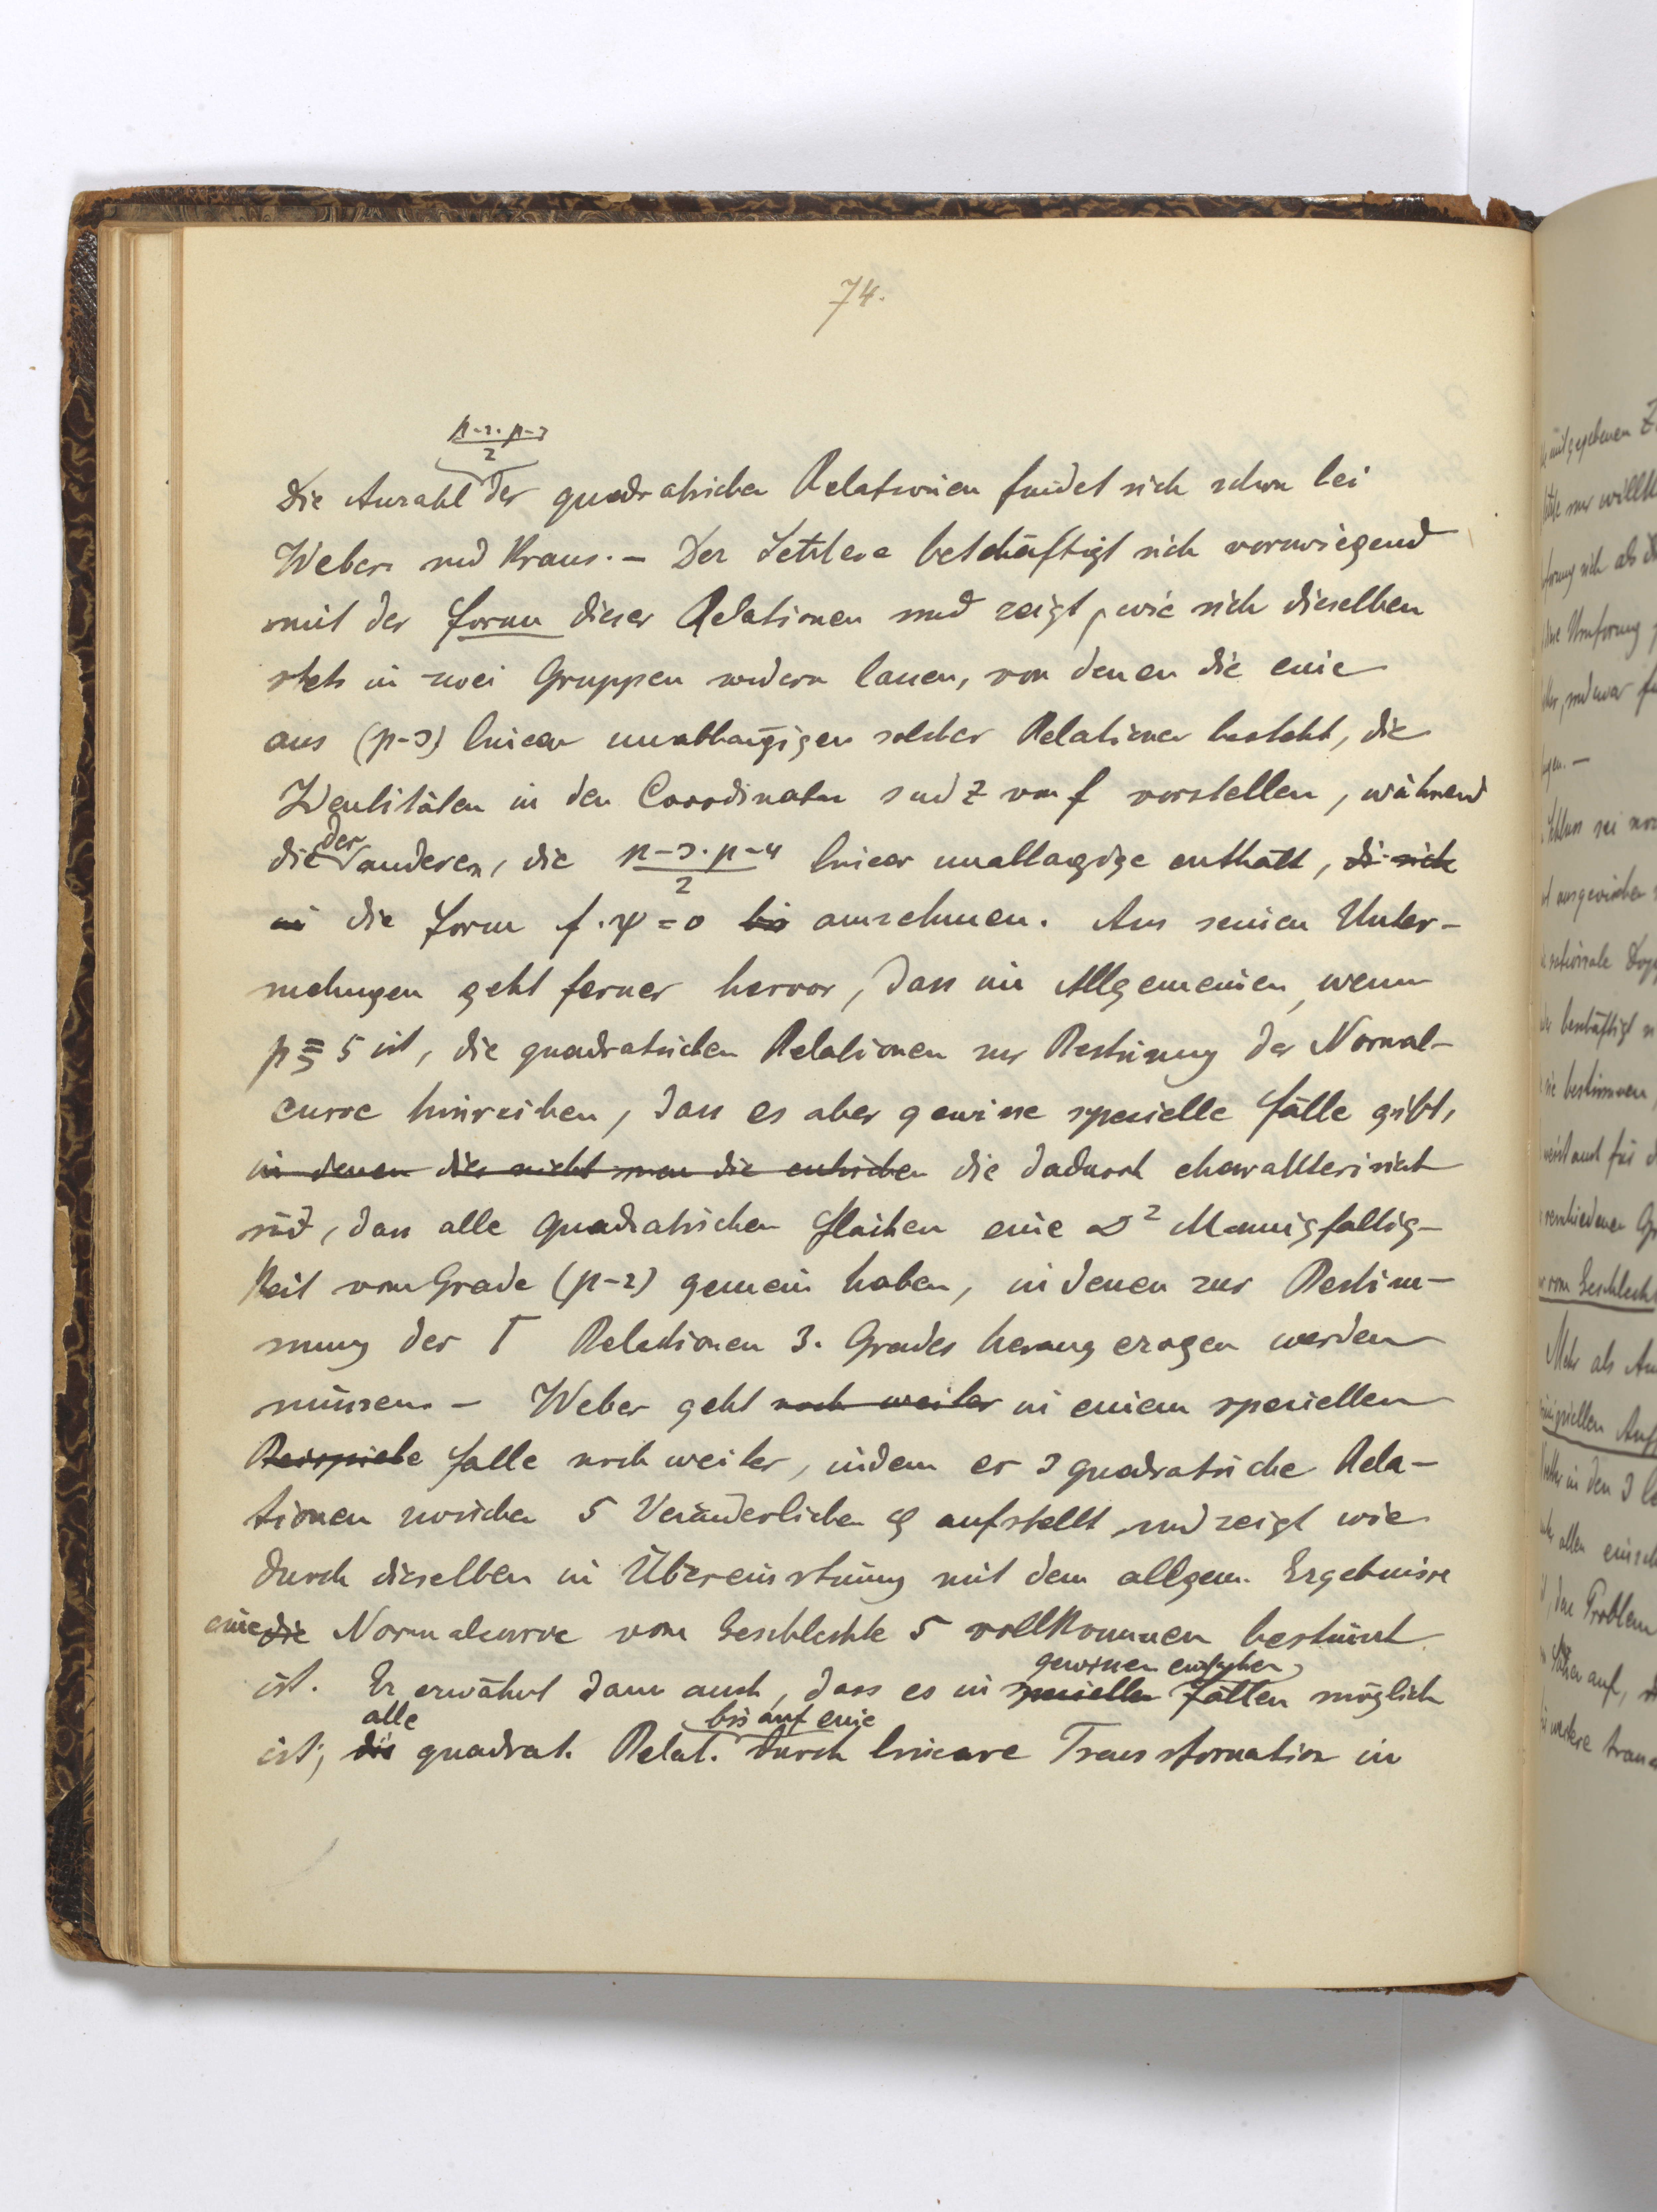 74.
p-2·p-3
2
Die Anzahl der quadratischen Relationen findet sich schon bei
Weber und Kraus. – Der Letztere beschäftigt sich vorwiegend
mit der Form dieser Relationen und zeigt, wie sich dieselben
stets in zwei Gruppen sondern lassen, von denen die eine
aus (p-3) linear unabhängigen solcher Relationen besteht, die
Identitäten in den Coordinaten s und z von f vorstellen, während
die der anderen, die p-3·p-4/2 linear unabhängige enthält, die sich
in die Form f·ψ=0 bis annehmen. Aus seinen Unter-
suchungen geht ferner hervor, dass im Allgemeinen, wenn
p ≧ 5 ist, die quadratischen Relationen zur Bestimung der Normal-
curve hinreichen, dass es aber gewisse spezielle Fälle gibt,
in denen dies nicht man die die dadurch charakterisirt
sind, dass alle quadratischen Flächen eine ∞² Mannigfaltig-
keit vom Grade (p-2) gemein haben, in denen zur Bestim-
mung der Γ Relationen 3. Grades herangezogen werden
müssen. – Weber geht noch weiter in einem speziellen
Beispiele Falle noch weiter, indem er 3 quadratische Rela-
tionen zwischen 5 Veränderlichen φ aufstellt und zeigt wie
durch dieselben in Übereinstimung mit dem allgem. Ergebnisse
eine die Normalcurve vom Geschlechte 5 vollkommen bestimt
gewissen einfachen
ist. Er erwähnt dann auch, dass es in speciellen Fällen möglich
alle bis auf eine
ist, die quadrat. Relat. durch lineare Transformation in